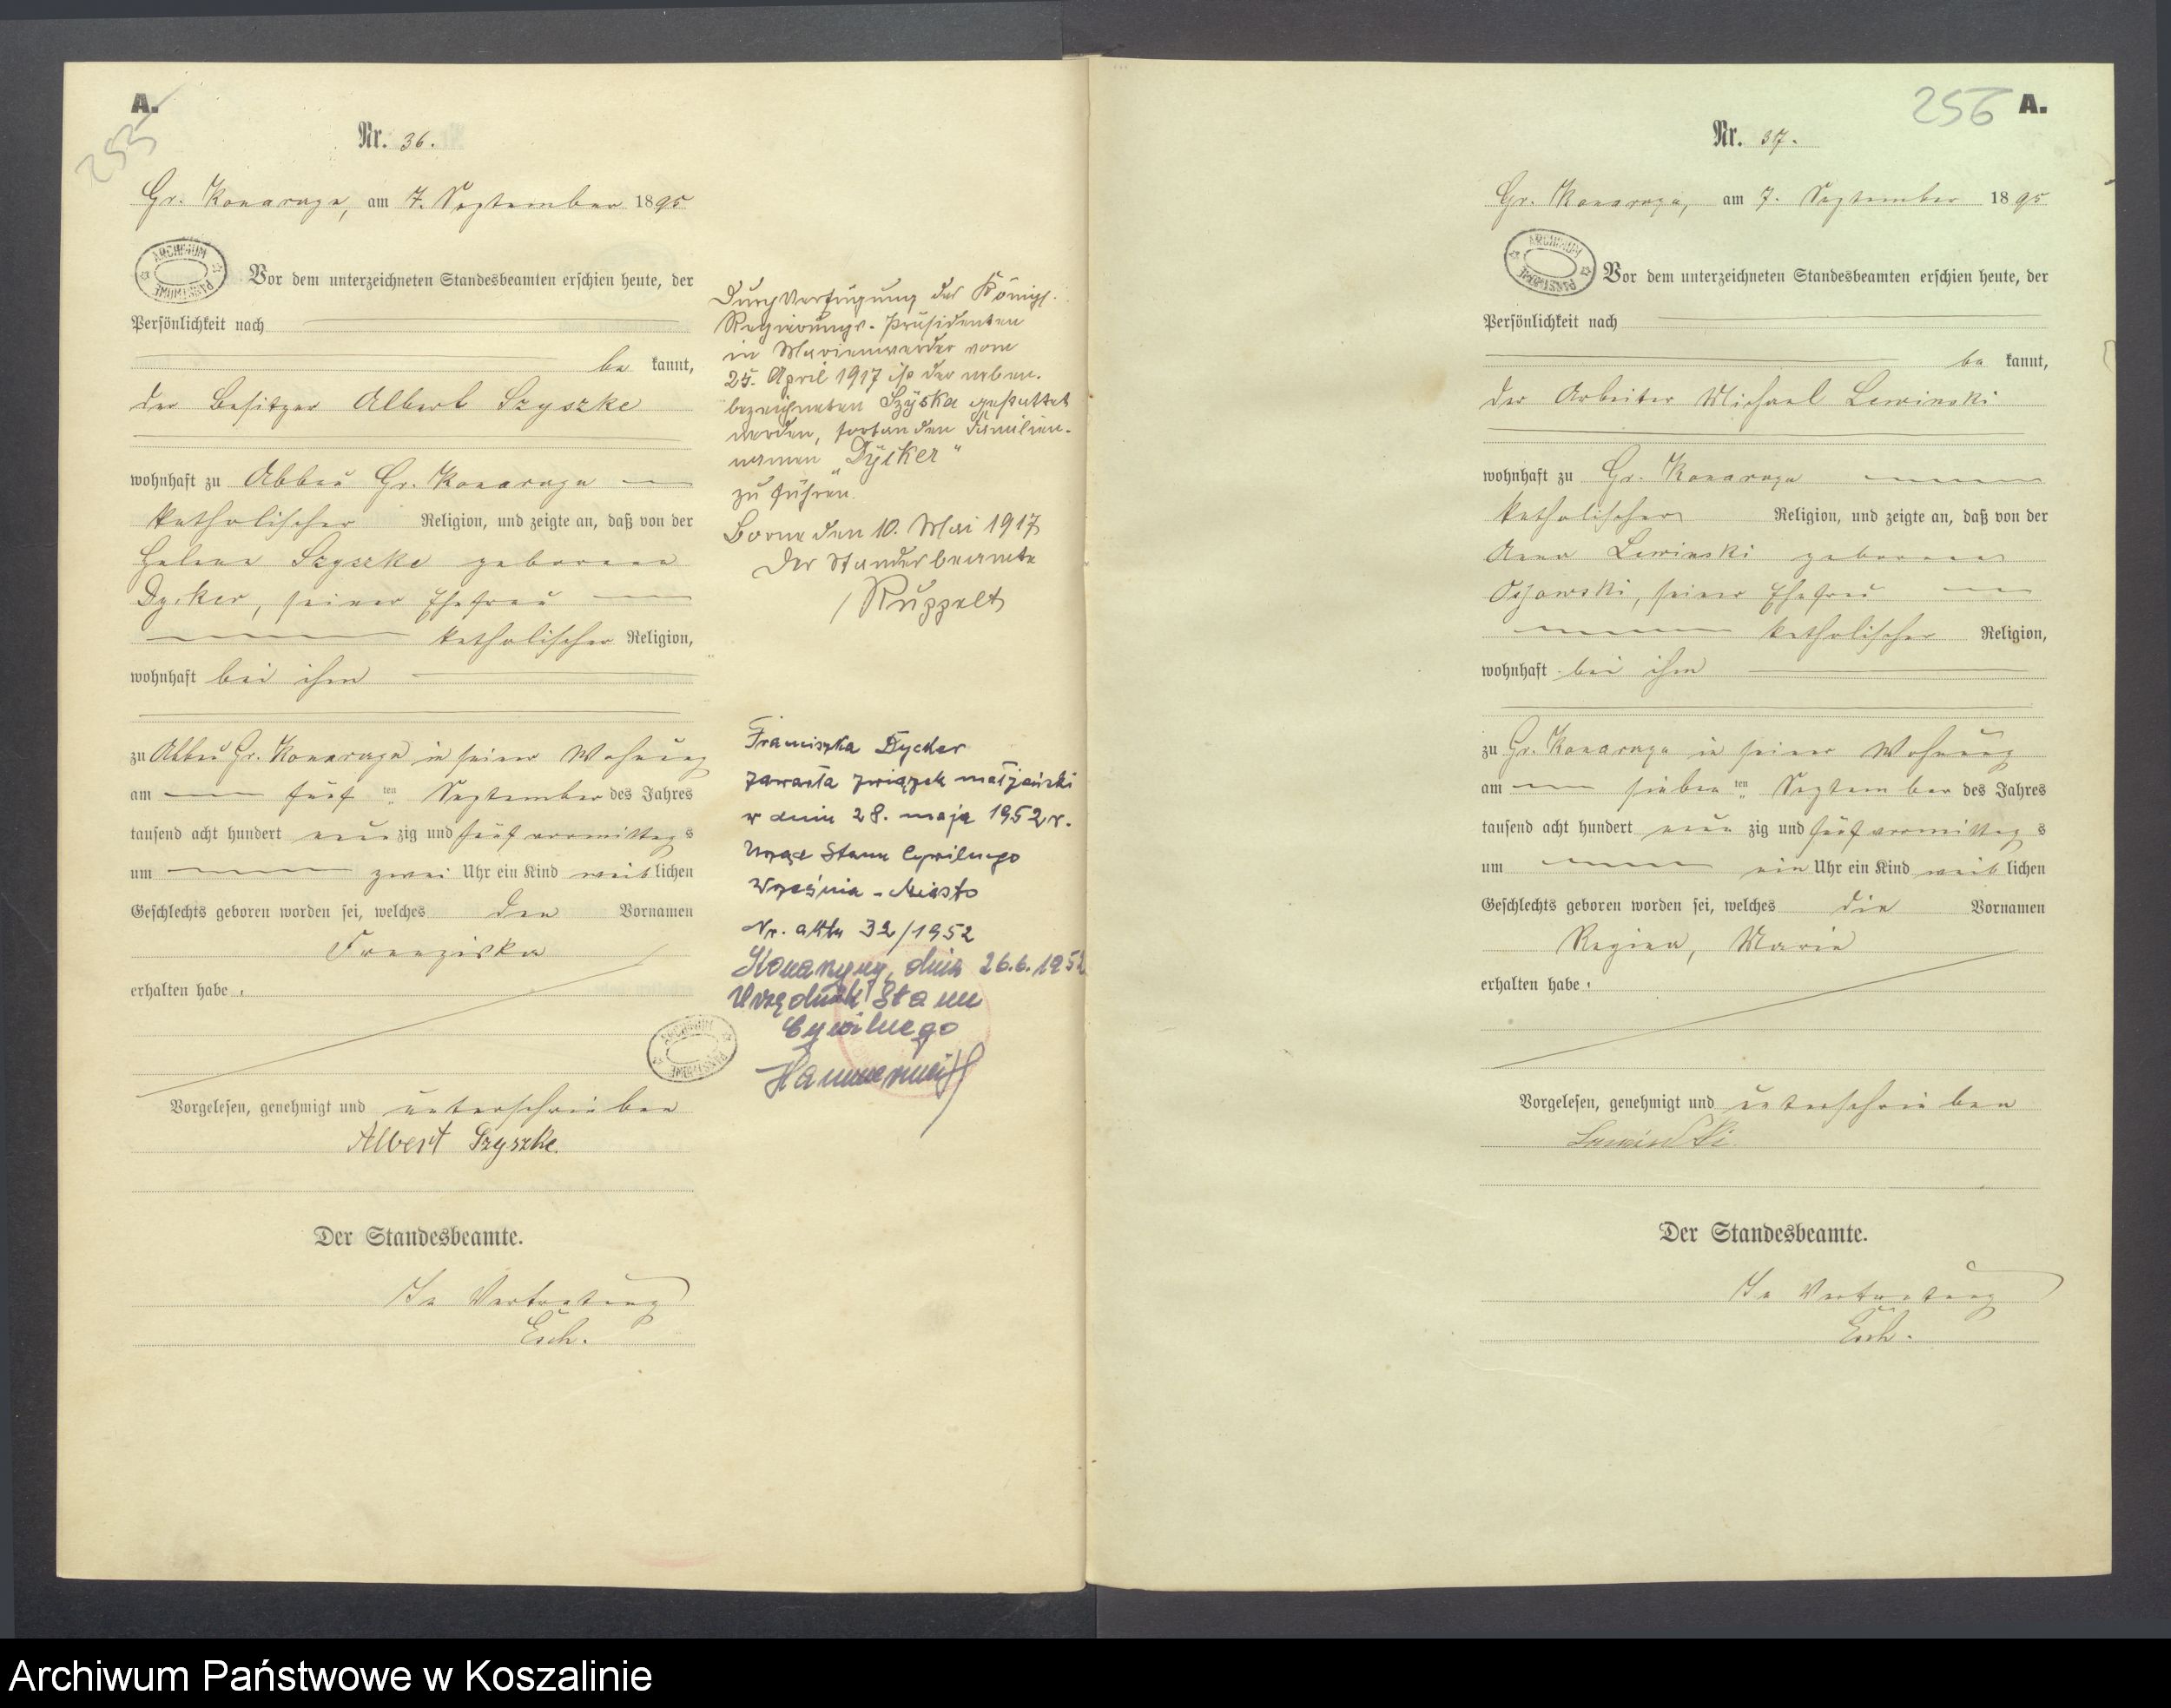 A.
255
Nr. 36.
Gr. Konarczyn, am 7. September 1895
ARCHIWUM PAŃSTWOWE
Vor dem unterzeichneten Standesbeamten erschien heute, der
Persönlichkeit nach
be kannt,
der Besitzer Albert Szyszke
wohnhaft zu Abbau Gr. Konarczyn
katholischer Religion, und zeigte an, daß von der
Helene Szyszke geborene
Dycker, seiner Ehefrau
katholischer Religion,
wohnhaft bei ihm
zu Abbau Gr. Konarczyn in seiner Wohnung
am fünf ten September des Jahres
tausend acht hundert neun zig und fünf vormittag s
um zwei Uhr ein Kind weib lichen
Geschlechts geboren worden sei, welches den Vornamen
Franziska
erhalten habe.
ARCHIWUM PAŃSTWOWE
Vorgelesen, genehmigt und unterschrieben
Albert Szyszke.
Der Standesbeamte.
In Vertretung
Esch.
Durch Verfügung des Königl.
Regierungs-Präsidenten
in Marienwerder vom
25. April 1917 ist der neben-
bezeichneten Szyska gestattet
worden, fortan den Familien-
namen „Dycker"
zu führen.
Borne den 10. Mai 1917
Der Standesbeamte
Ruppelt
Franciszka Dycker
zawarła związek małżeński
w dniu 28. maja 1952 r.
Urząd Stanu Cywilnego
Września - Miasto
Nr. aktu 32/1952
Konarzyny, dnia 26.6.1952
Urzędnik Stanu
Cywilnego
256 A.
Nr. 37.
Gr. Konarczyn, am 7. September 1895
ARCHIWUM PAŃSTWOWE
Vor dem unterzeichneten Standesbeamten erschien heute, der
Persönlichkeit nach
be kannt,
der Arbeiter Michael Lewinski
wohnhaft zu Gr. Konarczyn
katholischer Religion, und zeigte an, daß von der
Anna Lewinski geborene
Ossowski, seiner Ehefrau
katholischer Religion,
wohnhaft bei ihm
zu Gr. Konarczyn in seiner Wohnung
am sieben ten September des Jahres
tausend acht hundert neun zig und fünf vormittag s
um ein Uhr ein Kind weib lichen
Geschlechts geboren worden sei, welches die Vornamen
Regina, Marie
erhalten habe.
Vorgelesen, genehmigt und unterschrieben
Lewinski
Der Standesbeamte.
In Vertretung
Esch.
Archiwum Państwowe w Koszalinie